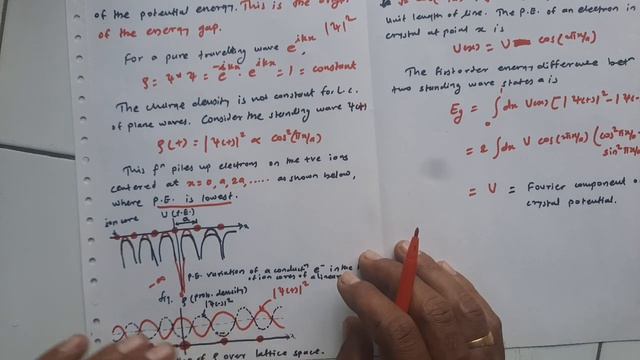 of the potential energy. This is the origin
of the energy gap.
For a pure travelling wave e^{ikx} |Ψ|²
ρ = Ψ*Ψ = e^{-ikx} · e^{ikx} = 1 = constant
The charge density is not constant for L.C.
of plane waves. Consider the standing wave Ψ(+)
ρ(+) = |Ψ(+)|² ∝ cos²(πx/a)
This fⁿ piles up electrons on the +ve ions
centered at x=0, a, 2a, ..... as shown below,
where P.E. is lowest.
U (P.E.)
a
ion core
x
-∞
P.E. variation of a conductⁿ e⁻ in the
of ion cores of a linear
fig.
ρ (prob. density)
|Ψ(-)|²
|Ψ(+)|²
of ρ over lattice space.
unit length of line. The P.E. of an electron in
crystal at point x is
U(x) = U cos(2πx/a)
The first order energy difference bet
two standing wave states is
Eg = ∫₀¹ dx U(x) [|Ψ(+)|² - |Ψ(-
= 2 ∫ dx U cos(2πx/a) (cos²πx/a
sin²πx/a
= U = Fourier component o
crystal potential.